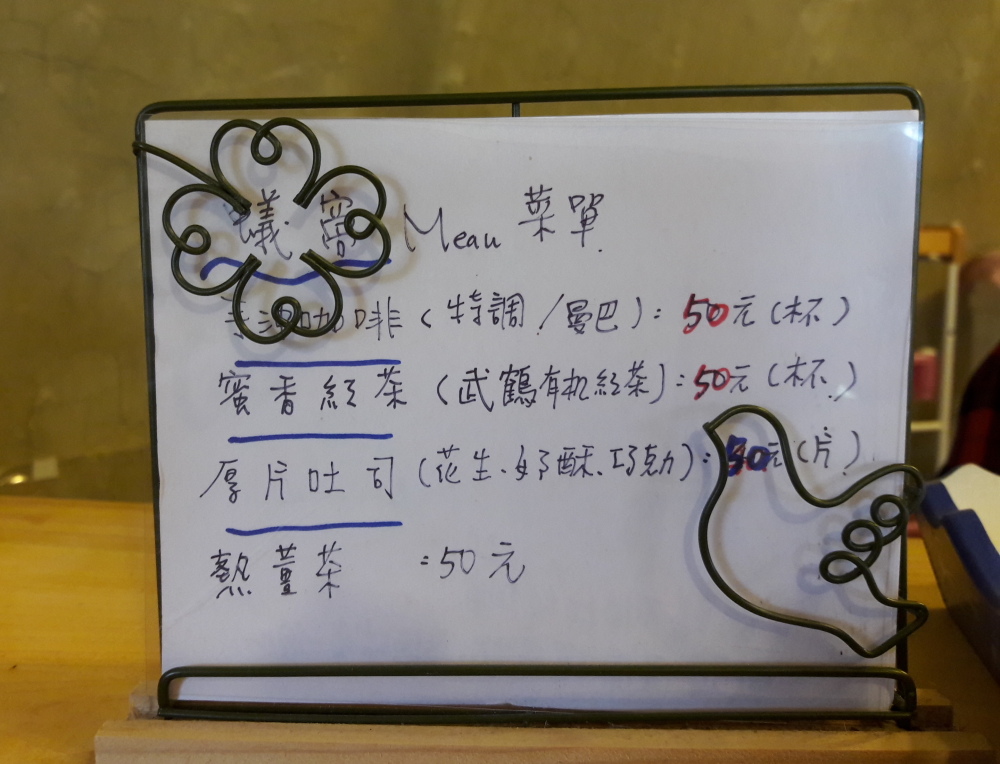 蟻窩 Meau 菜單
手沖咖啡(特調/曼巴):50元(杯)
蜜香紅茶(武鶴有机紅茶):50元(杯)
厚片吐司(花生、奶酥、巧克力):50元(片)
熱薑茶 :50元